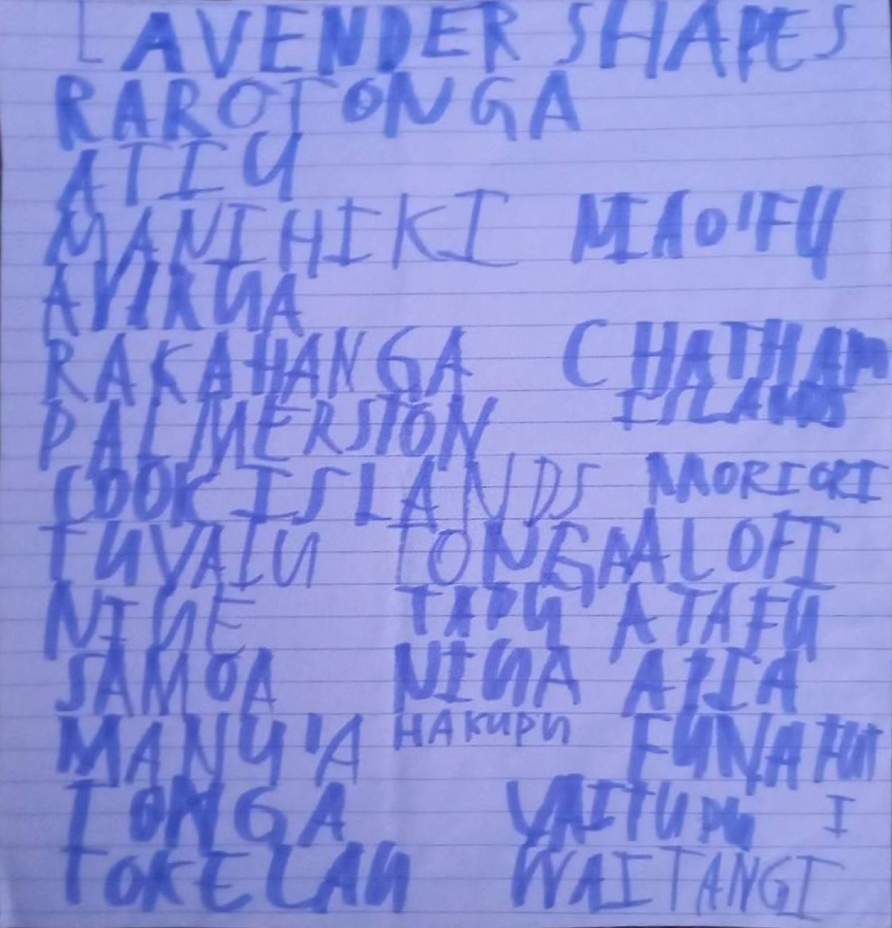 LAVENDER SHAPES
RAROTONGA
ATIU
MANIHIKI NIAO'FU
AVARUA
RAKAHANGA CHATHAM
PALMERSTON ISLANDS
COOK ISLANDS MORIORI
TUVALU TONGA ALOFI
NIUE TAPU ATAFU
SAMOA NIUA APIA
MANU'A HAKUPU FUNAFUTI
TONGA VAITUPU
TOKELAU WAITANGI